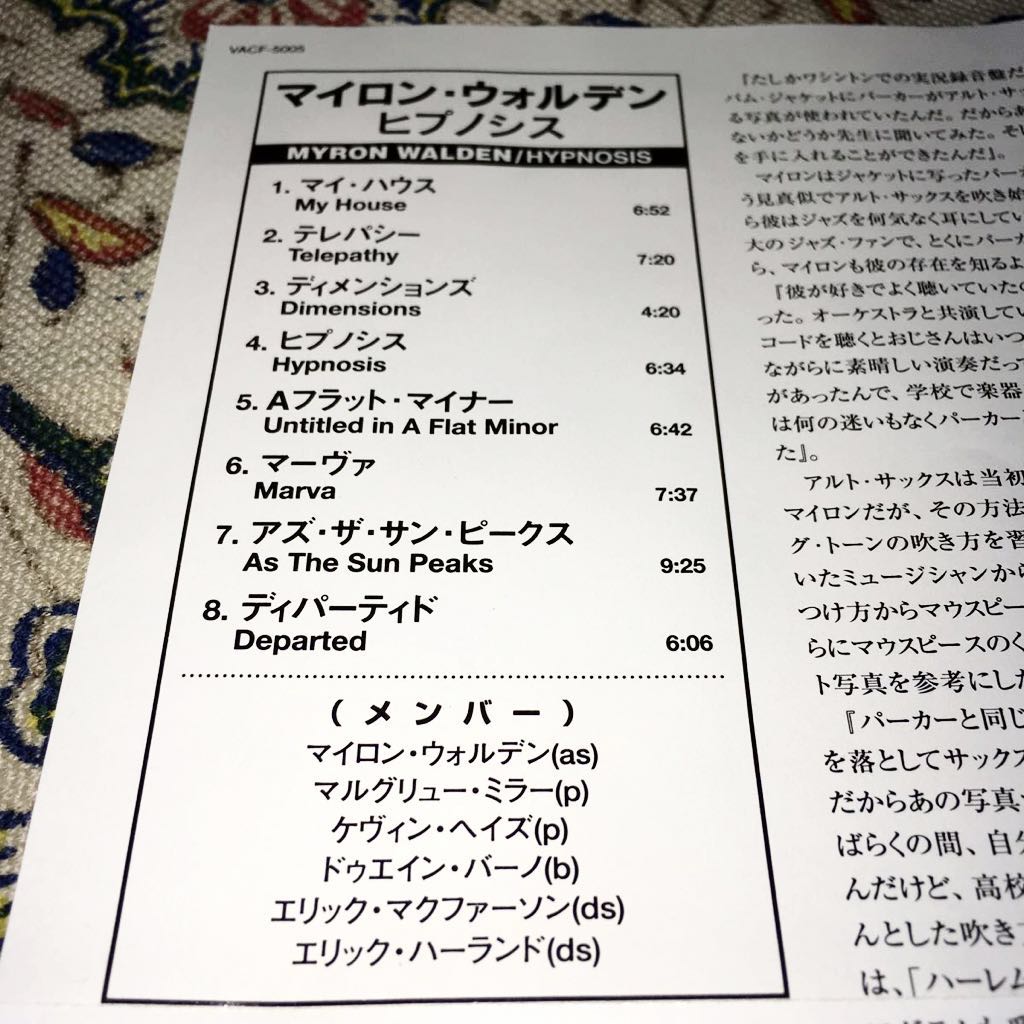 VACF-5005
マイロン・ウォルデン
ヒプノシス
MYRON WALDEN/HYPNOSIS
1. マイ・ハウス
My House 6:52
2. テレパシー
Telepathy 7:20
3. ディメンションズ
Dimensions 4:20
4. ヒプノシス
Hypnosis 6:34
5. Aフラット・マイナー
Untitled in A Flat Minor 6:42
6. マーヴァ
Marva 7:37
7. アズ・ザ・サン・ピークス
As The Sun Peaks 9:25
8. ディパーティド
Departed 6:06
(メンバー)
マイロン・ウォルデン(as)
マルグリュー・ミラー(p)
ケヴィン・ヘイズ(p)
ドゥエイン・バーノ(b)
エリック・マクファーソン(ds)
エリック・ハーランド(ds)
『たしかワシントンでの実況録音盤だ
バム・ジャケットにパーカーがアルト・サッ
る写真が使われていたんだ。だからあ
ないかどうか先生に聞いてみた。そ
を手に入れることができたんだ』。
マイロンはジャケットに写ったパーカ
う見真似でアルト・サックスを吹き始
ら彼はジャズを何気なく耳にしてい
大のジャズ・ファンで、とくにパーカ
ら、マイロンも彼の存在を知るよ
『彼が好きでよく聴いていたの
った。オーケストラと共演してい
コードを聴くとおじさんはいつ
ながらに素晴しい演奏だっ
があったんで、学校で楽器
は何の迷いもなくパーカー
た』。
アルト・サックスは当初
マイロンだが、その方法
グ・トーンの吹き方を習
いたミュージシャンから
つけ方からマウスピー
らにマウスピースのく
ト写真を参考にした
『パーカーと同じ
を落としてサックス
だからあの写真
ばらくの間、自分
んだけど、高校
んとした吹き方
は、「ハーレム